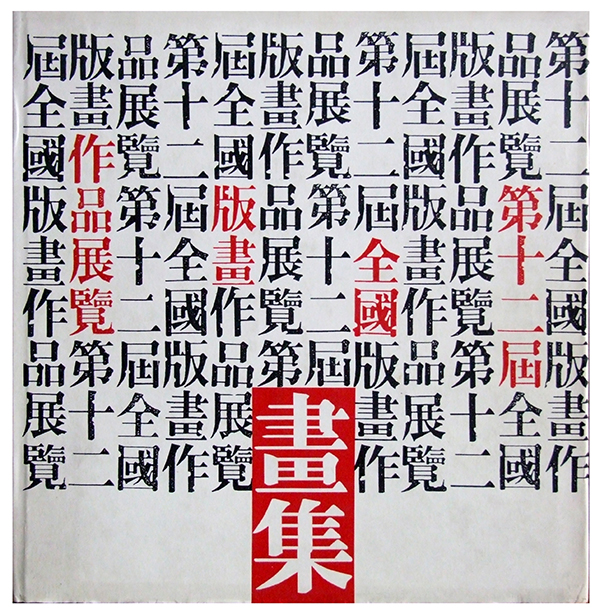 第十二屆全國版畫作
品展覽第十二屆全國
版畫作品展覽第十二
屆全國版畫作品展覽
第十二屆全國版畫作
品展覽第十二屆
版畫作品展覽第
屆全國版畫作品展覽
第十二屆全國版畫作
品展覽第十二屆全國
版畫作品展覽第十二
屆全國版畫作品展覽
畫集